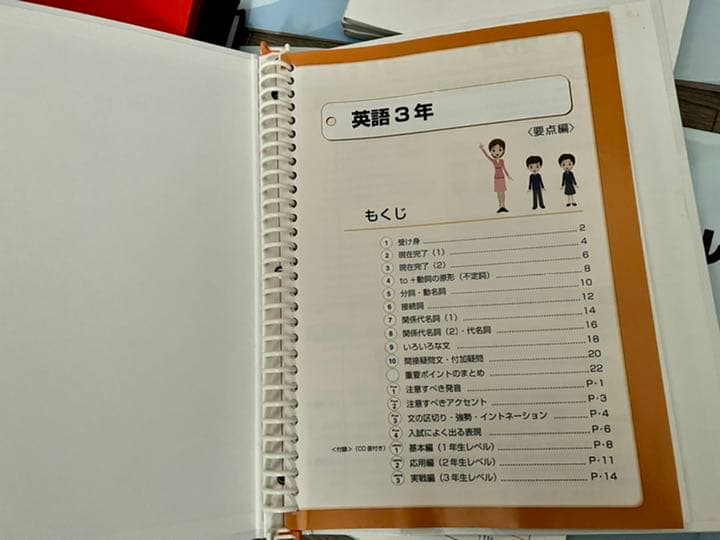 英語3年
〈要点編〉
もくじ
1 受け身 2
2 現在完了(1) 4
3 現在完了(2) 6
4 to+動詞の原形(不定詞) 8
5 分詞・動名詞 10
6 接続詞 12
7 関係代名詞(1) 14
8 関係代名詞(2)・代名詞 16
9 いろいろな文 18
10 間接疑問文・付加疑問 20
重要ポイントのまとめ 22
1 注意すべき発音 P・1
2 注意すべきアクセント P・3
3 文の区切り・強勢・イントネーション P・4
4 入試によく出る表現 P・6
〈付録〉(CD面付き) 1 基本編(1年生レベル) P・8
2 応用編(2年生レベル) P・11
3 実戦編(3年生レベル) P・14